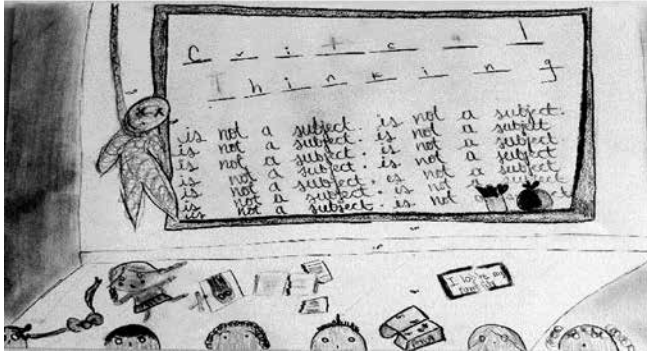 C r i t c a l
T h i n k i n g
is not a subject. is not a subject.
is not a subject. is not a subject
is not a subject. is not a subject
is not a subject. is not a subject
is not a subject. is not a subject
is not a subject. is not a subject
is not a subject. is not a
I love my
family